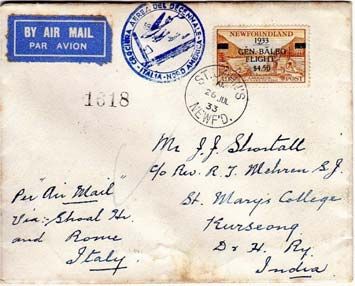 BY AIR MAIL
PAR AVION
CROCIERA AEREA DEL DECENNALE
ITALIA - NORD AMERICA
NEWFOUNDLAND
1933
GEN. BALBO
FLIGHT
$4.50
POST
ST. JOHN'S
26 JUL
33
NEWF'D.
1618
Mr J. J. Shortall
c/o Rev. R. T. Mehren S.J.
St. Mary's College
Kurseong
D & H. Ry.
India
Per "Air Mail"
Via: Shoal Hr.
and Rome
Italy.